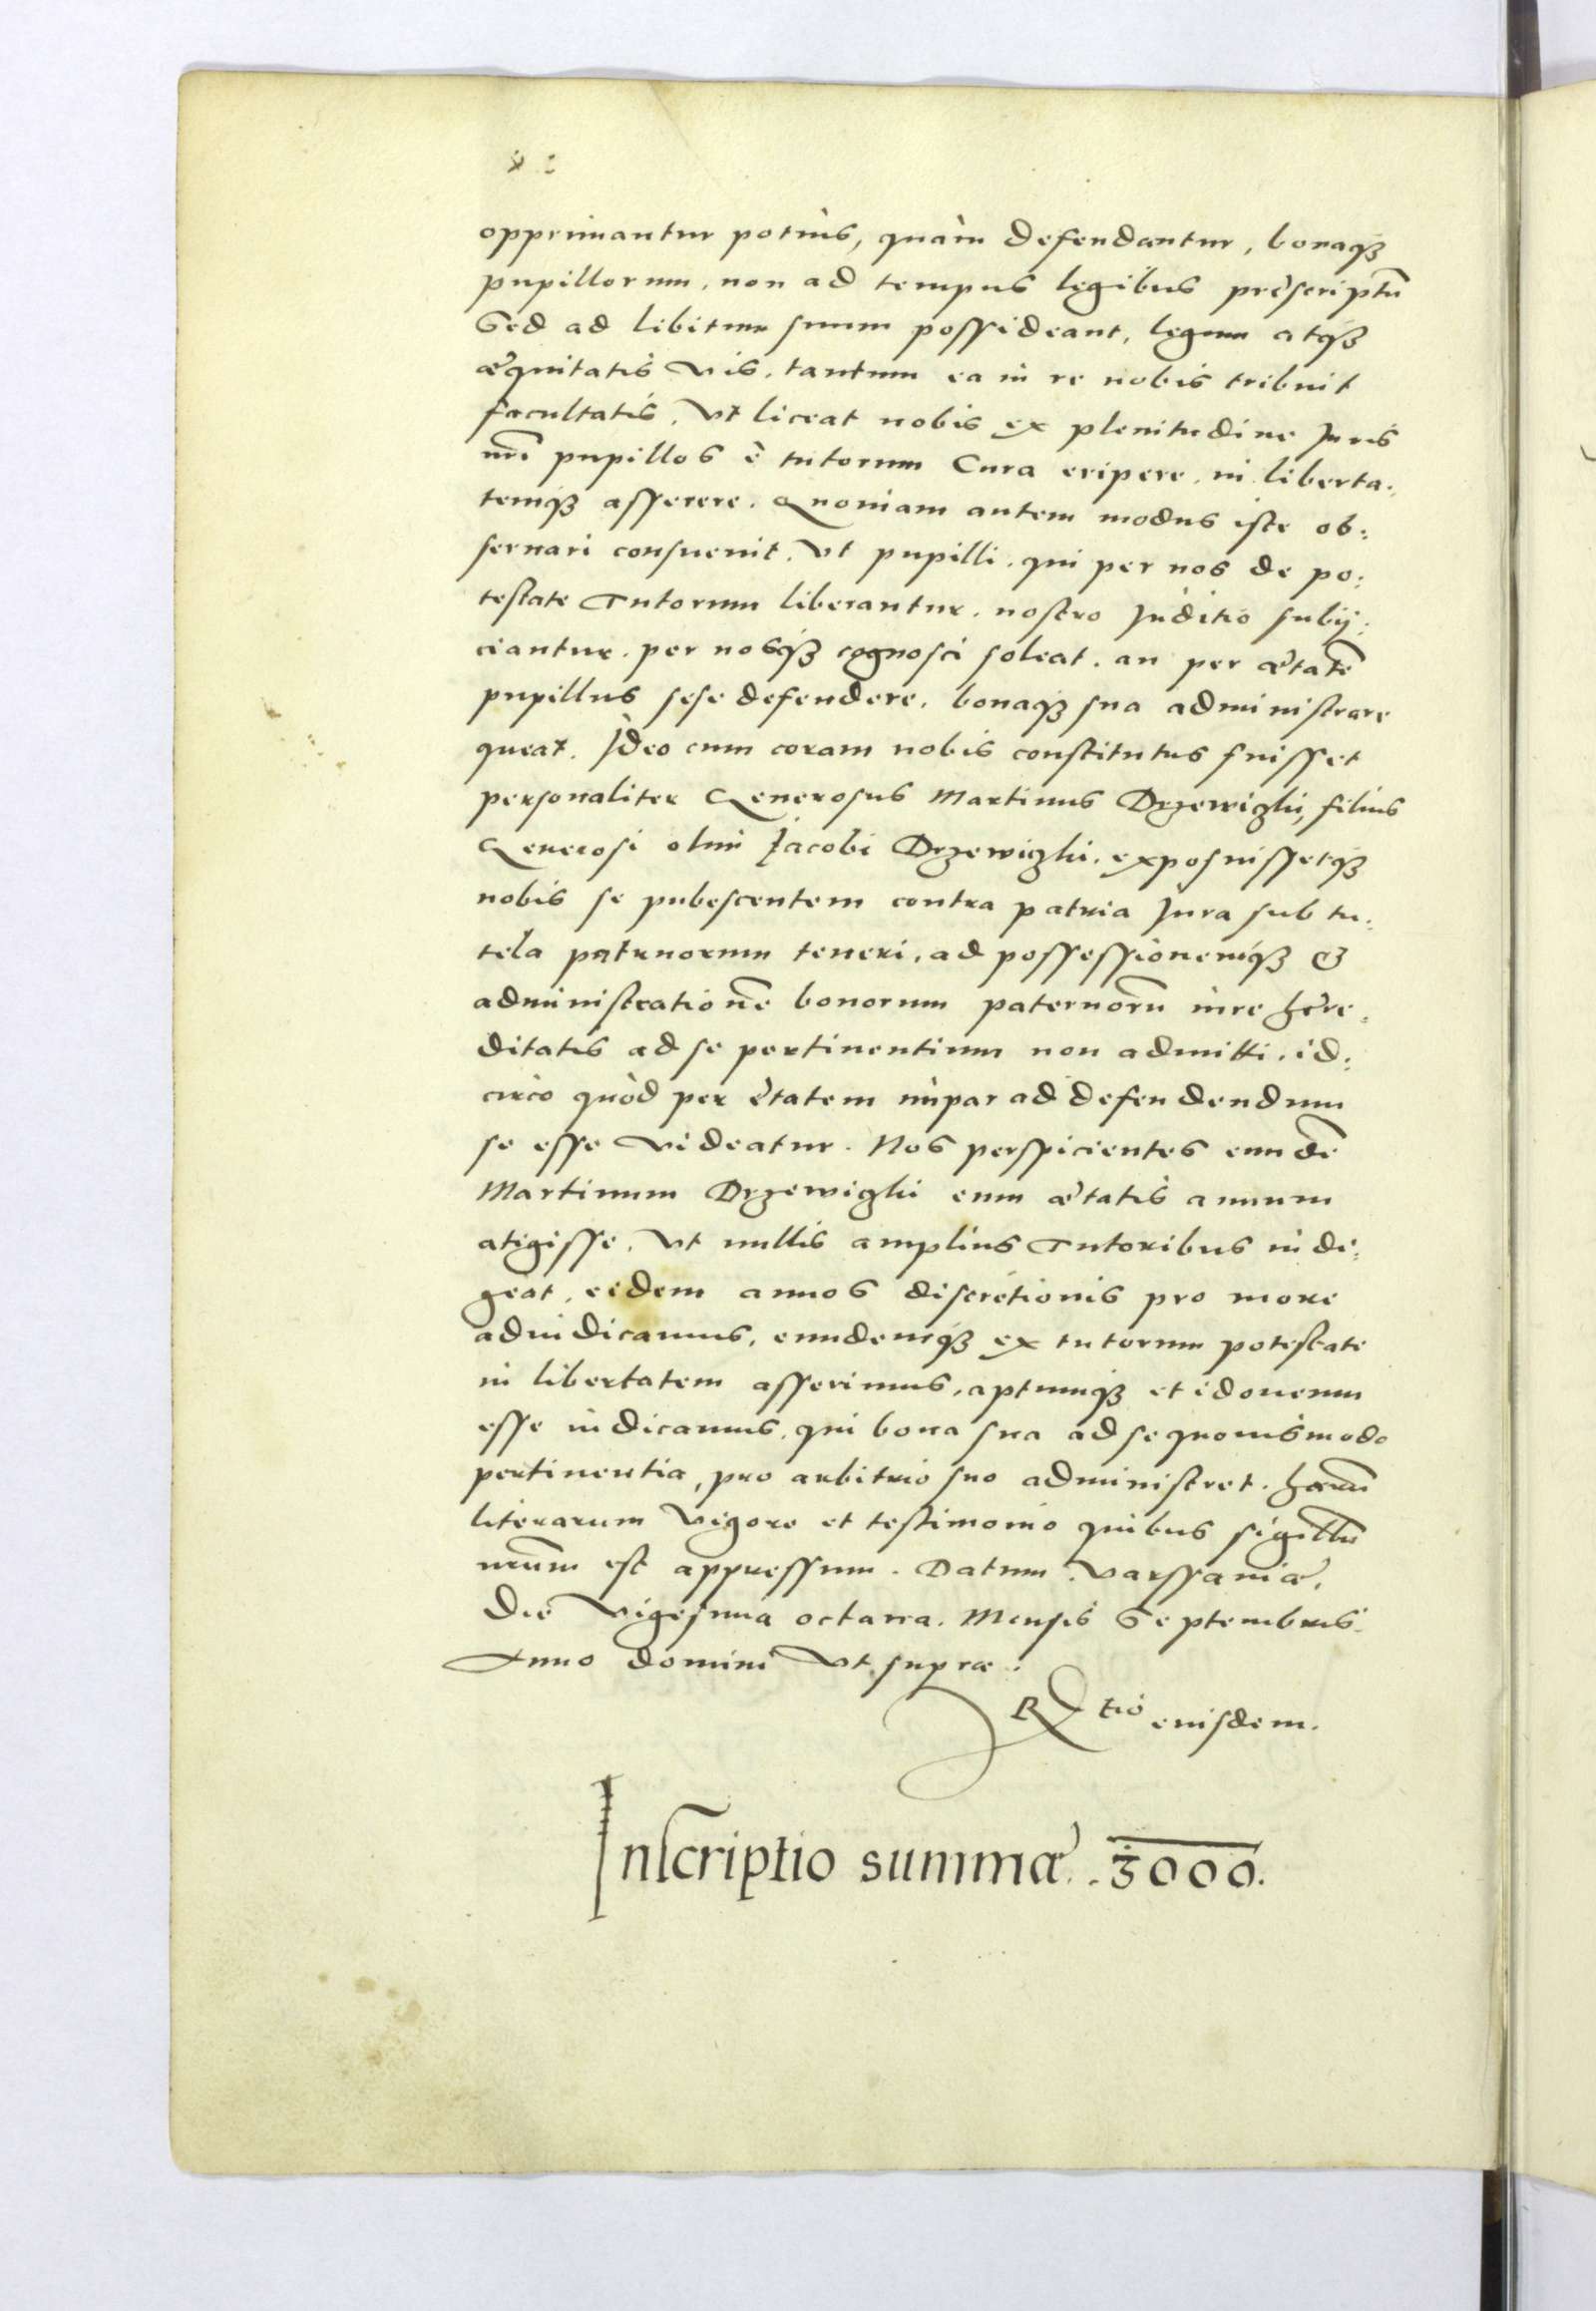 opprimantur potiùs, quàm defendantur, bonaq3
pupillorum, non ad tempus legibus pręscriptũ
Sed ad libitum suum possideant, legum atq3
æquitatis vis, tantum ea in re nobis tribuit
facultatis, Vt liceat nobis ex plenitudine Juris
nrĩ pupillos è tutorum Cura eripere, in liberta:
temq3 asserere. Quoniam autem modus iste ob:
seruari consueuit, Vt pupilli, qui per nos de po:
testate Tutorum liberantur, nostro Juditio subij:
ciantur, per nosq3 cognosci soleat, an per ætatẽ
pupillus sese defendere, bonaq3 sua administrare
queat. Ideo cum coram nobis constitutus fuisset
personaliter Generosus Martinus Drzewiczki, filius
Generosi olim Jacobi Drzewiczki, exposuissetq3
nobis se pubescentem contra patria Jura sub tu:
tela patruorum teneri, ad possessionemq3 &
administrationẽ bonorum paternorũ iure hære:
ditatis ad se pertinentium non admitti, id:
circò quòd per ętatem impar ad defendendum
se esse videatur. Nos perspicientes eundẽ
Martinum Drzewiczki eum ætatis annum
atigisse, Vt nullis amplius Tutoribus indi:
geat, eidem annos discretionis pro more
adiudicamus, eundemq3 ex tutorum potestate
in libertatem asserimus, aptumq3 et idoneum
esse iudicamus, qui bona sua ad se quouismodo
pertinentia, pro arbitrio suo administret. harũ
literarum Vigore et testimonio quibus sigillũ
nrũm est appressum. Datum Varssauiæ,
Die Vigesima octaua. Mensis Septembris
Anno domini Vt supra:
R tio eiusdem.
Inscriptio summæ 3000.